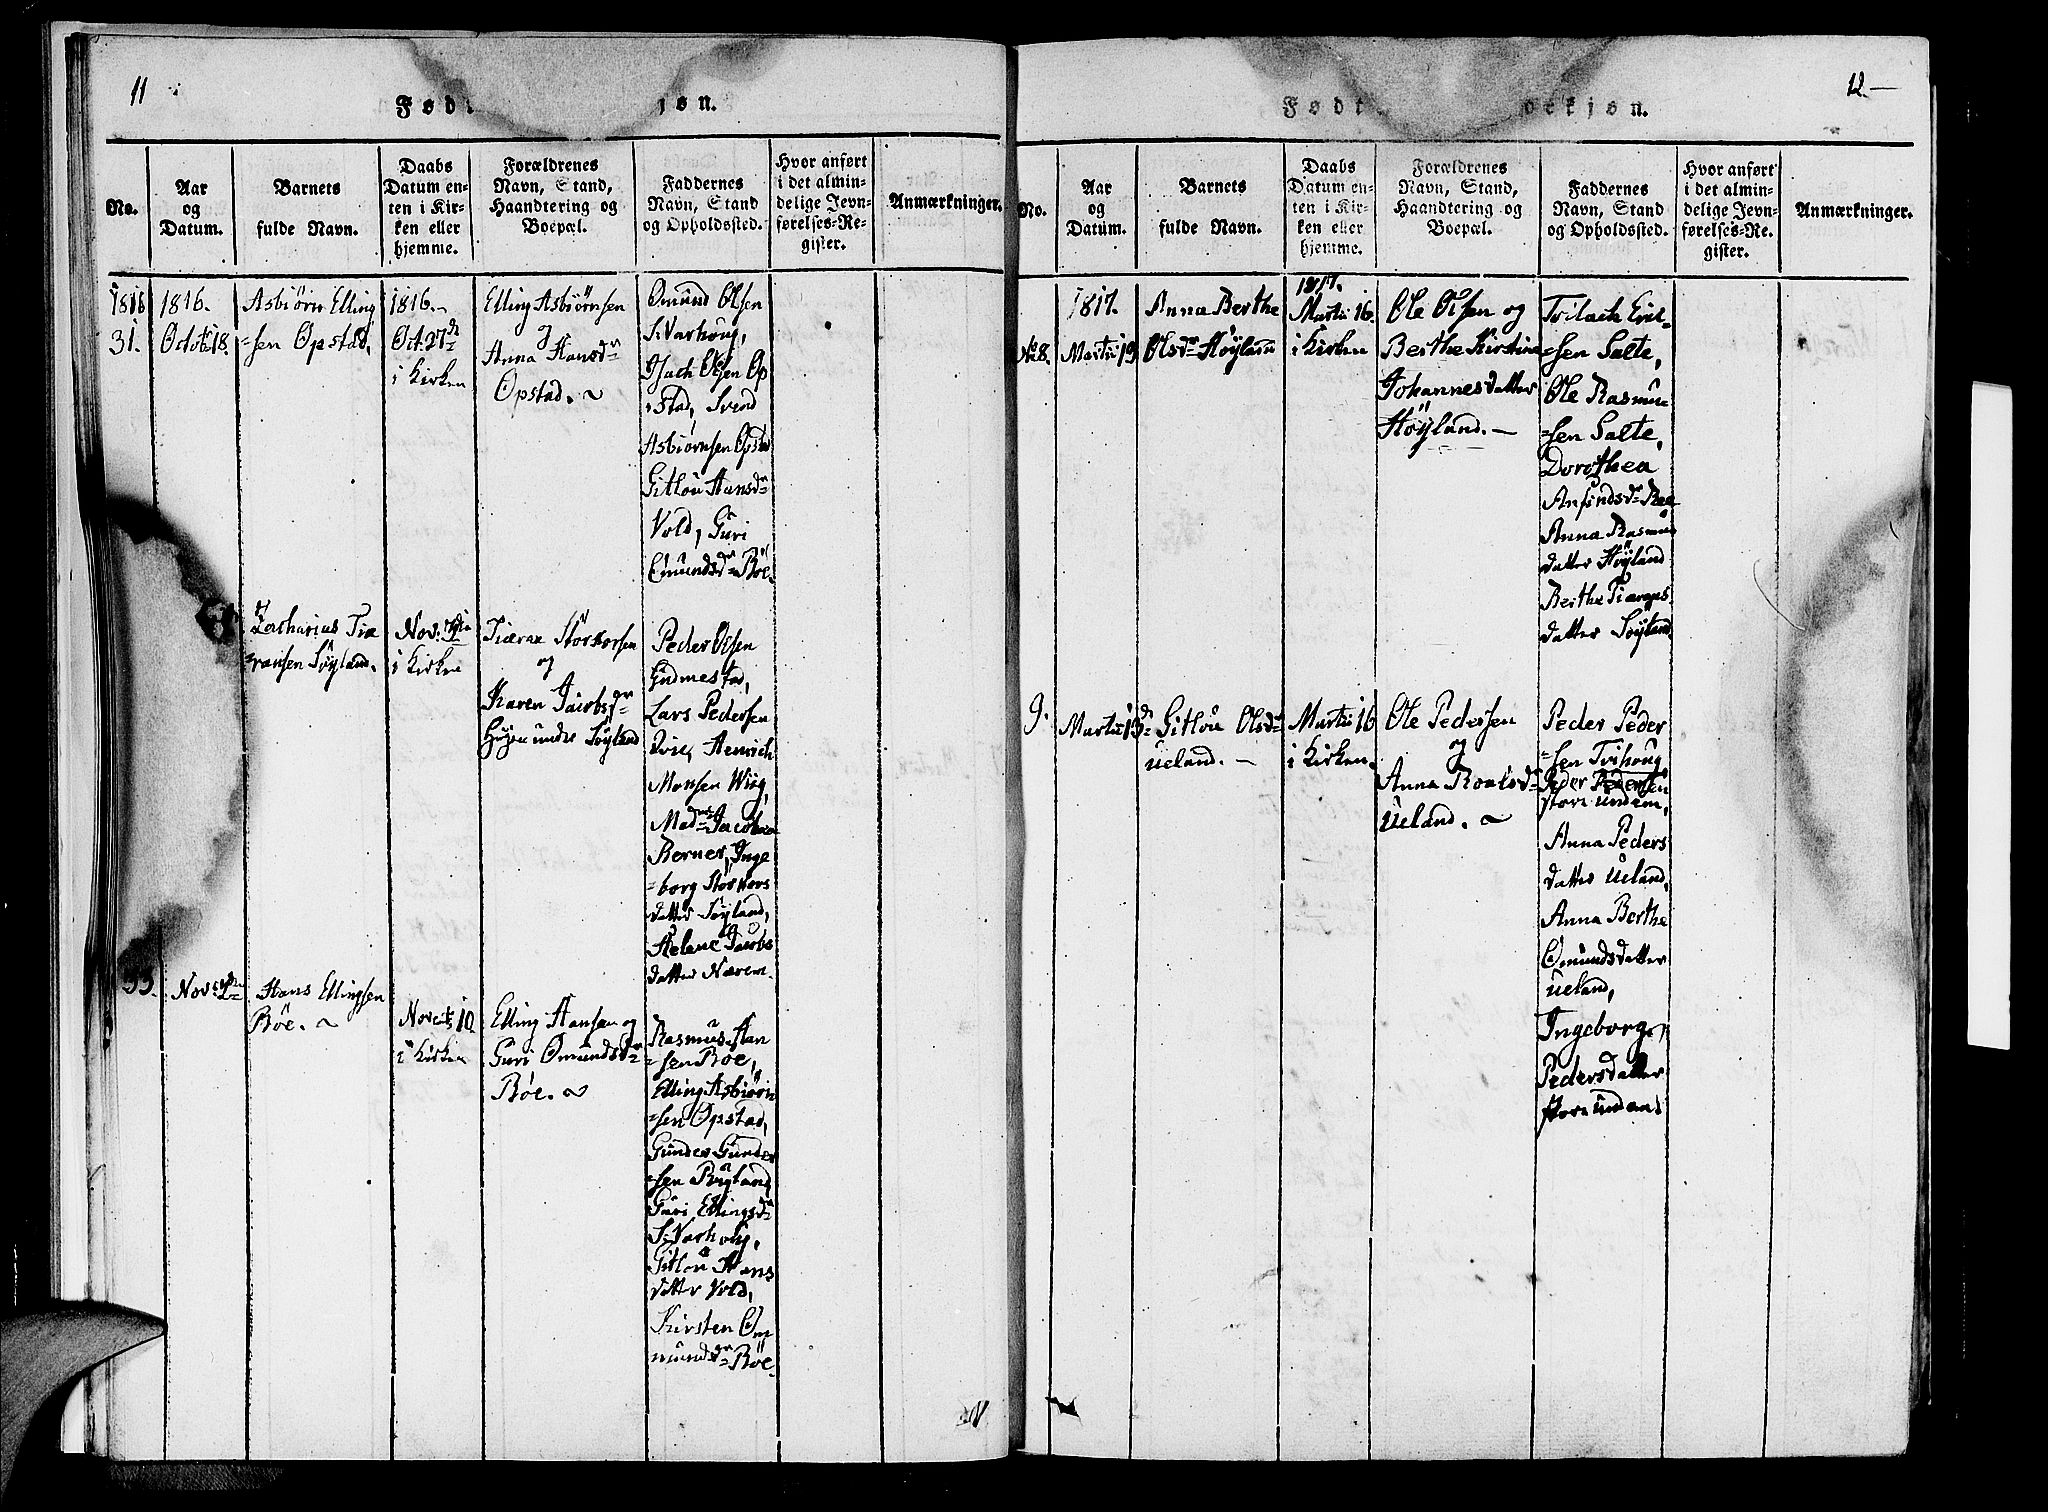 11
Født
jøn.
No.
Aar
og
Datum.
Barnets
fulde Navn.
Daabs
Datum en-
ten i Kir-
ken eller
hjemme.
Forældrenes
Navn, Stand,
Haandtering og
Boepæl.
Faddernes
Navn, Stand
og Opholdssted.
Hvor anført
i det almin-
delige Jevn-
førelses-Re-
gister.
Anmærkninger.
1816
31.
1816.
Octob: 18.
Asbiörn Elling
=sen Opstad.
1816.
Oct. 27de
i Kirken
Elling Asbiörnsen
og
Anna Hansdr
Opstad. ~
Omund Olsen
S. Varhoug,
Isach Olsen Op
=stad, Svend
Asbiörnsen Opstad
Gitlou Hansdr
Vold, Guri
Omundsdr Böe.
Zacharius Tiæ
=ransen Söyland.
Nov:
i Kirken
Tiæran Storkorsen
og
Karen Jacobsdr
under Söyland
Peder Olsen
Gudmestad,
Lars Pedersen
Henrich
Monsen Wiig,
Mad: Jacobæa
Berner, Inge
=borg Storkors
datter Söyland,
Helene Jacobs
datter Nærem.
33.
Nov:
Hans Ellingsen
Böe. ~
Novemb: 10
i Kirken
Elling Hansen og
Guri Omundsdr
Böe. ~
Rasmus Han
=sen Böe,
Elling Asbiörn
=sen Opstad,
Gunder Gunder
=sen Ryland
Guri Ellingsdr
S. Varhoug,
Gitlou Hans
datter Vold,
Kirsten Om
mundsdr Böe.
12.—
Født
oekjøn.
No.
Aar
og
Datum.
Barnets
fulde Navn.
Daabs
Datum en-
ten i Kir-
ken eller
hjemme.
Forældrenes
Navn, Stand,
Haandtering og
Boepæl.
Faddernes
Navn, Stand
og Opholdssted.
Hvor anført
i det almin-
delige Jevn-
førelses-Re-
gister.
Anmærkninger.
No 8.
1817.
Martii 19
Anna Berthe
Olsdr Höyland
1817.
Martii 16.
i Kirken
Ole Olsen og
Berthe Kirstine
Johannesdatter
Höyland. —
Torlach Erich
=sen Salte,
Ole Rasmu
=sen Salte,
Dorothea
Ansindsdr Boe
Anna Rasmus
datter Höyland
Berthe Tiærans
datter Söyland.
9.
Martii 13de
Gitlou Olsdr
Ueland. —
Martii 16
i Kirken.
Ole Pedersen
og
Anna Roalsdr
Ueland. ~
Peder Peder
=sen Tvihoug
Peder Pedersen
store undem,
Anna Peders
datter Ueland,
Anna Berthe
Omundsdatter
Ueland,
Ingeborg
Pedersdatter
store undem.